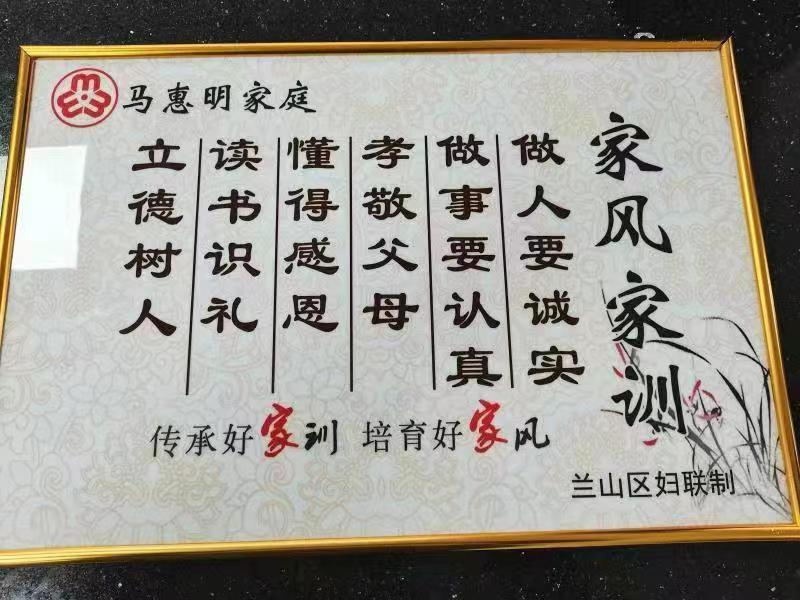 马惠明家庭
家风家训
做人要诚实
做事要认真
孝敬父母
懂得感恩
读书识礼
立德树人
传承好家训 培育好家风
兰山区妇联制